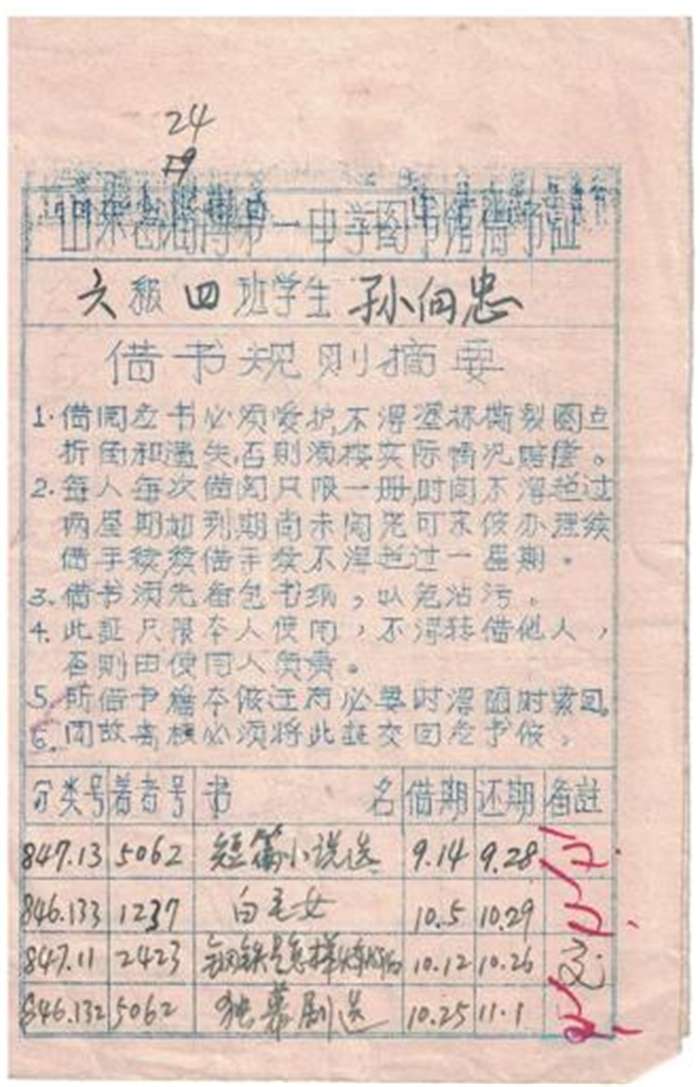 24
山东省淄博第一中学图书馆借书証
六级四班学生 孙向忠
借书规则摘要
1. 借阅产书必须爱护,不得塗抹撕裂圈点
折角和遗失,否则须按实际情况赔偿。
2. 每人每次借阅只限一册,时间不得超过
两星期如到期尚未阅完可来馆办理续
借手续,续借手续不得超过一星期。
3. 借书须先备包书纸,以免沾污。
4. 此証只限本人使用,不得转借他人,
否则由使用人负责。
5. 所借书籍本馆过有必要时得随时索回。
6. 因故离校必须将此証交回产书馆。
分类号 著者号 书名 借期 还期 备註
847.13 5062 短篇小说选 9.14 9.28
846.133 1237 白毛女 10.5 10.29
847.11 2423 钢铁是怎样炼成的 10.12 10.26
846.132 5062 独幕剧选 10.25 11.1